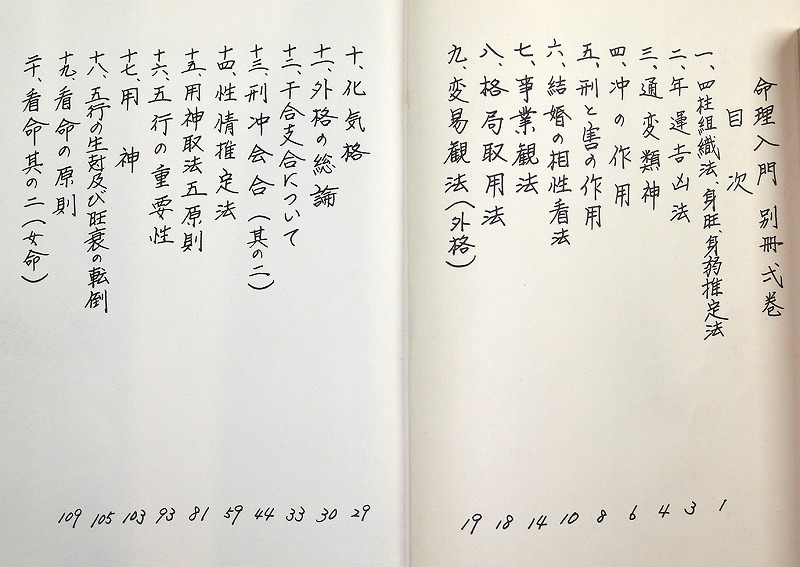 命理入門 別冊弍巻
目次
一、四柱組織法、身旺、身弱推定法 1
二、年運吉凶法 3
三、通変類神 4
四、冲の作用 6
五、刑と害の作用 8
六、結婚の相性看法 10
七、事業観法 14
八、格局取用法 18
九、変易観法(外格) 19
十、化気格 29
十一、外格の総論 30
十二、干合支合について 33
十三、刑冲会合(其の二) 44
十四、性情推定法 59
十五、用神取法五原則 81
十六、五行の重要性 93
十七、用神 103
十八、五行の生尅及び旺衰の転倒 105
十九、看命の原則
二十、看命其の二(女命) 109